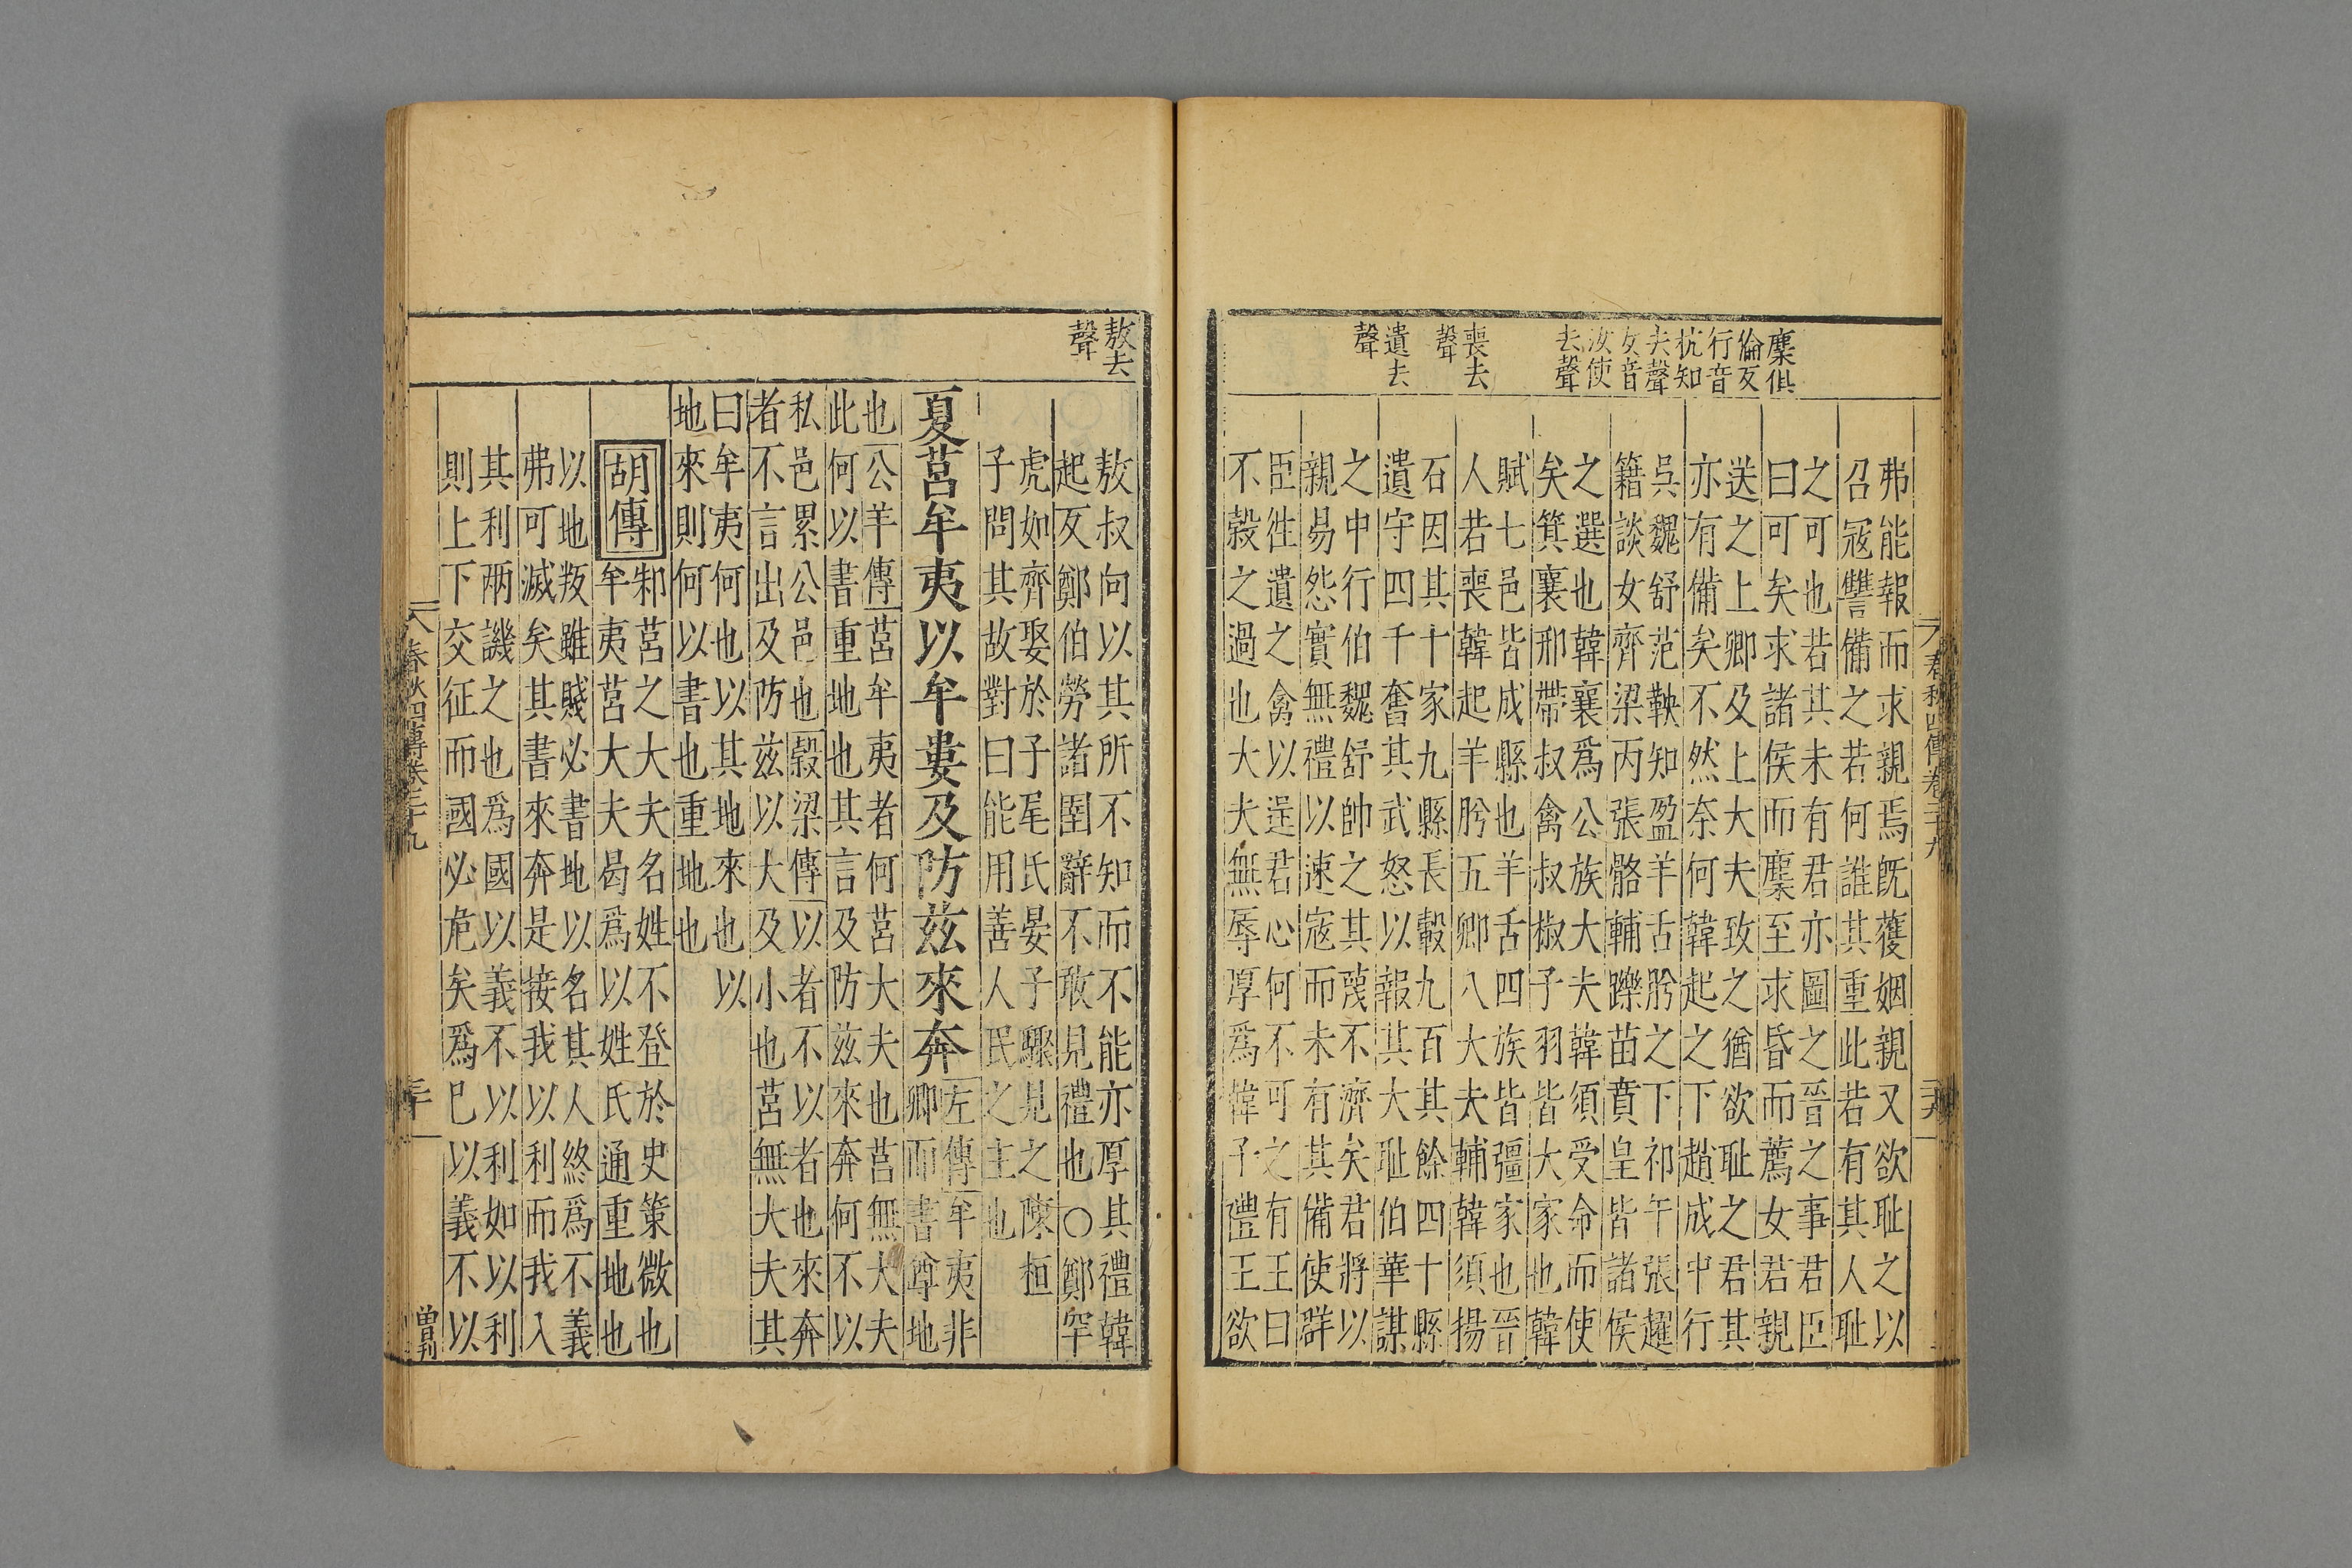 麇俱
倫反
行音
杭知
去聲
女音
汝使
去聲
喪去
聲
遺去
聲
弗能報而求親焉旣獲姻親又欲耻之以
召寇讐備之若何誰其重此若有其人耻
之可也若其未有君亦圖之晉之事君臣
曰可矣求諸侯而麇至求昏而薦女君親
送之上卿及上大夫致之猶欲耻之君其
亦有備矣不然奈何韓起之下趙成中行
吳魏舒范鞅知盈羊舌肸之下祁午張趯
籍談女齊梁丙張骼輔躒苗賁皇皆諸侯
之選也韓襄爲公族大夫韓須受命而使
矣箕襄邢帶叔禽叔椒子羽皆大家也韓
賦七邑皆成縣也羊舌四族皆彊家也晉
人若喪韓起羊肸五卿八大夫輔韓須揚
石因其十家九縣長轂九百其餘四十縣
遺守四千奮其武怒以報其大耻伯華謀
之中行伯魏舒帥之其蔑不濟矣君將以
親易怨實無禮以速寇而未有其備使群
臣徃遺之禽以逞君心何不可之有王曰
不榖之過也大夫無辱厚爲韓子禮王欲
春秋四傳卷二十九
敖去
聲
敖叔向以其所不知而不能亦厚其禮韓
起反鄭伯勞諸圉辭不敢見禮也○鄭罕
虎如齊娶於子尾氏晏子驟見之陳桓
子問其故對曰能用善人民之主也
夏莒牟夷以牟婁及防茲來奔
左傳牟夷非
卿而書尊地
也公羊傳莒牟夷者何莒大夫也莒無大夫
此何以書重地也其言及防茲來奔何不以
私邑累公邑也榖梁傳以者不以者也來奔
者不言出及防茲以大及小也莒無大夫其
曰牟夷何也以其地來也以
地來則何以書也重地也
胡傳
邾莒之大夫名姓不登於史策微也
牟夷莒大夫曷爲以姓氏通重地也
以地叛雖賤必書地以名其人終爲不義
弗可滅矣其書來奔是接我以利而我入
其利兩譏之也爲國以義不以利如以利
則上下交征而國必危矣爲巳以義不以
春秋四傳卷二十九
三十
曾刊